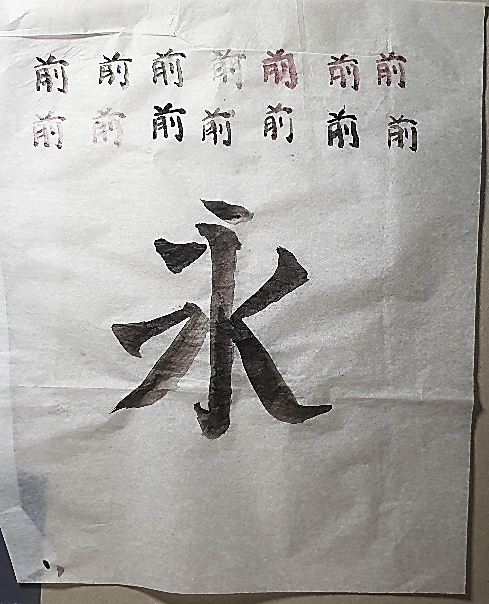 前前前前前前前
前前前前前前前
永